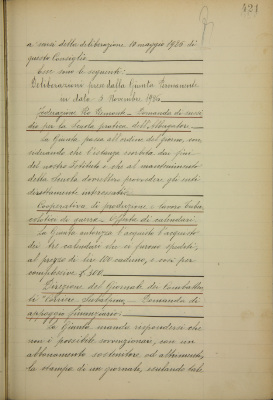 321
a cura della deliberazione 10 maggio 1926 di
questo Consiglio.
Esse sono le seguenti:
Deliberazioni prese dalla Giunta Permanente
in data 5 Novembre 1926
Federazione Pro Piemonte - Domanda di sussi-
dio per la Scuola pratica dell'Albugatore.
La Giunta passa all'ordine del giorno, con-
siderando che l'istanza esorbita dai fini
del nostro Istituto e che al mantenimento
della Scuola dovrebbero provvedere gli enti
direttamente interessati.
Cooperativa di produzione e lavoro tuber-
colotici di guerra - Offerta di calendari.
La Giunta autorizza l'acquisto
dei calendari che ci furono spediti,
al prezzo di lire 100 caduno, e così per
complessive £ 300
Direzione del Giornale dei Combattenti
di appoggio finanziario.
La Giunta manda rispondersi che
non è possibile sovvenzionare, con un
abbonamento sostenitore od altrimenti,
la stampa di un giornale, esulando tale